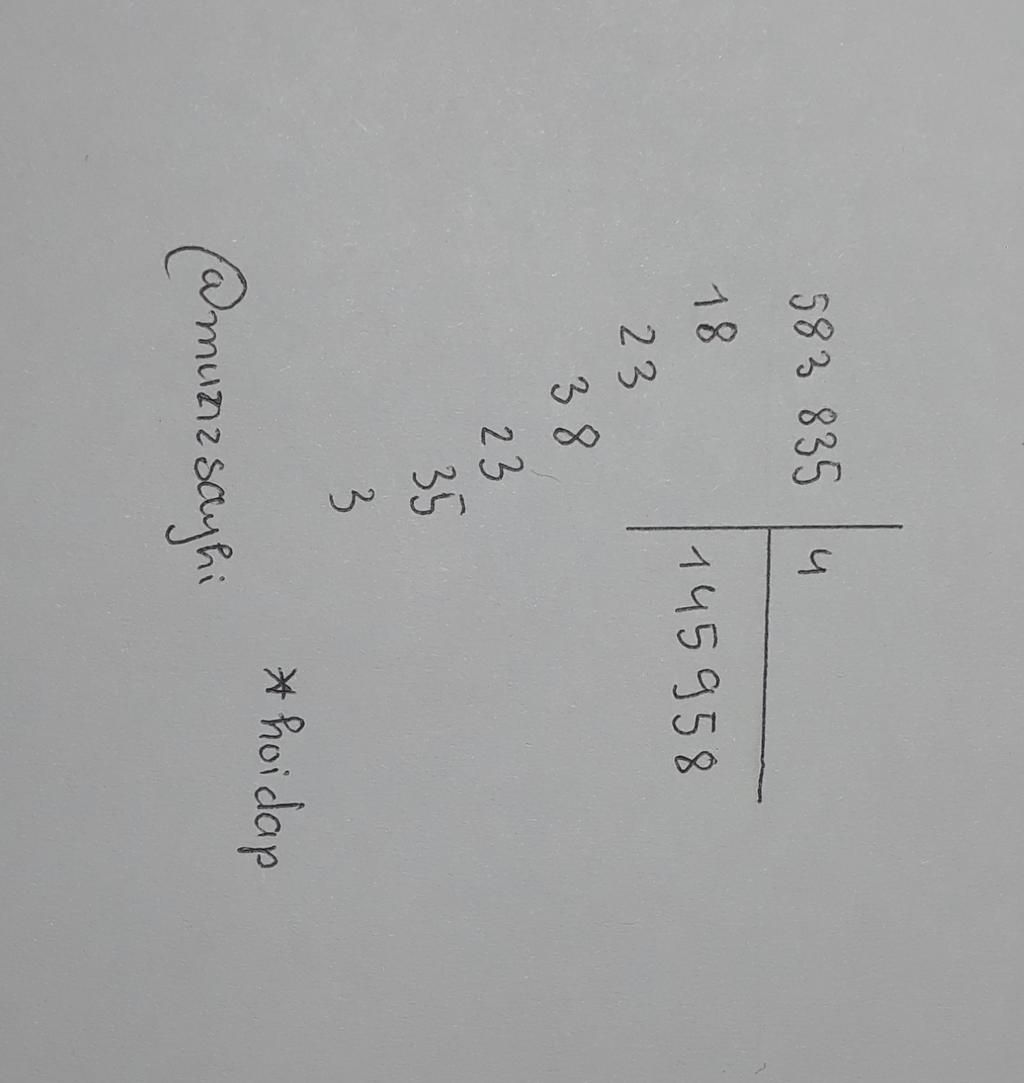 583 835 4
18 145958
23
38
23
35
3
*hoidap
@muzizsayhi